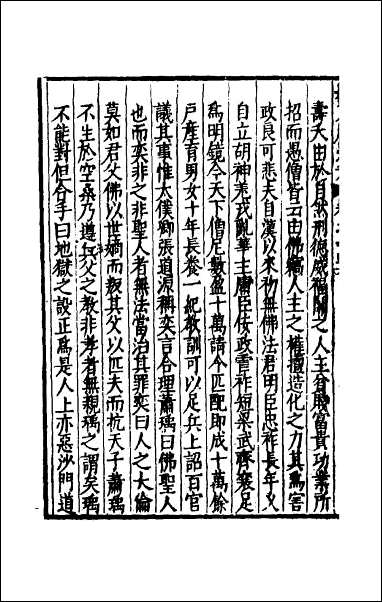 壽夭由於自然刑德威福關之人主貧賤富貴功業所
招而愚僧皆云由佛竊人主之權擅造化之力其爲害
政良可悲夫自漢以來初無佛法君明臣忠祚長年乆
自立胡神羌戎亂華主庸臣佞政虐祚短梁武齊襄足
爲明鏡今天下僧尼數盈十萬請令匹配即成十萬餘
户產育男女十年長養一紀敎訓可以足兵上詔百官
議其事惟太僕卿張道源稱奕言合理蕭瑀曰佛聖人
也而奕非之非聖人者無法當治其罪奕曰人之大倫
莫如君父佛以世嫡而叛其父以匹夫而抗天子蕭瑀
不生於空桑乃遵無父之敎非孝者無親瑀之謂矣瑀
不能對但合手曰地獄之設正爲是人上亦惡沙門道